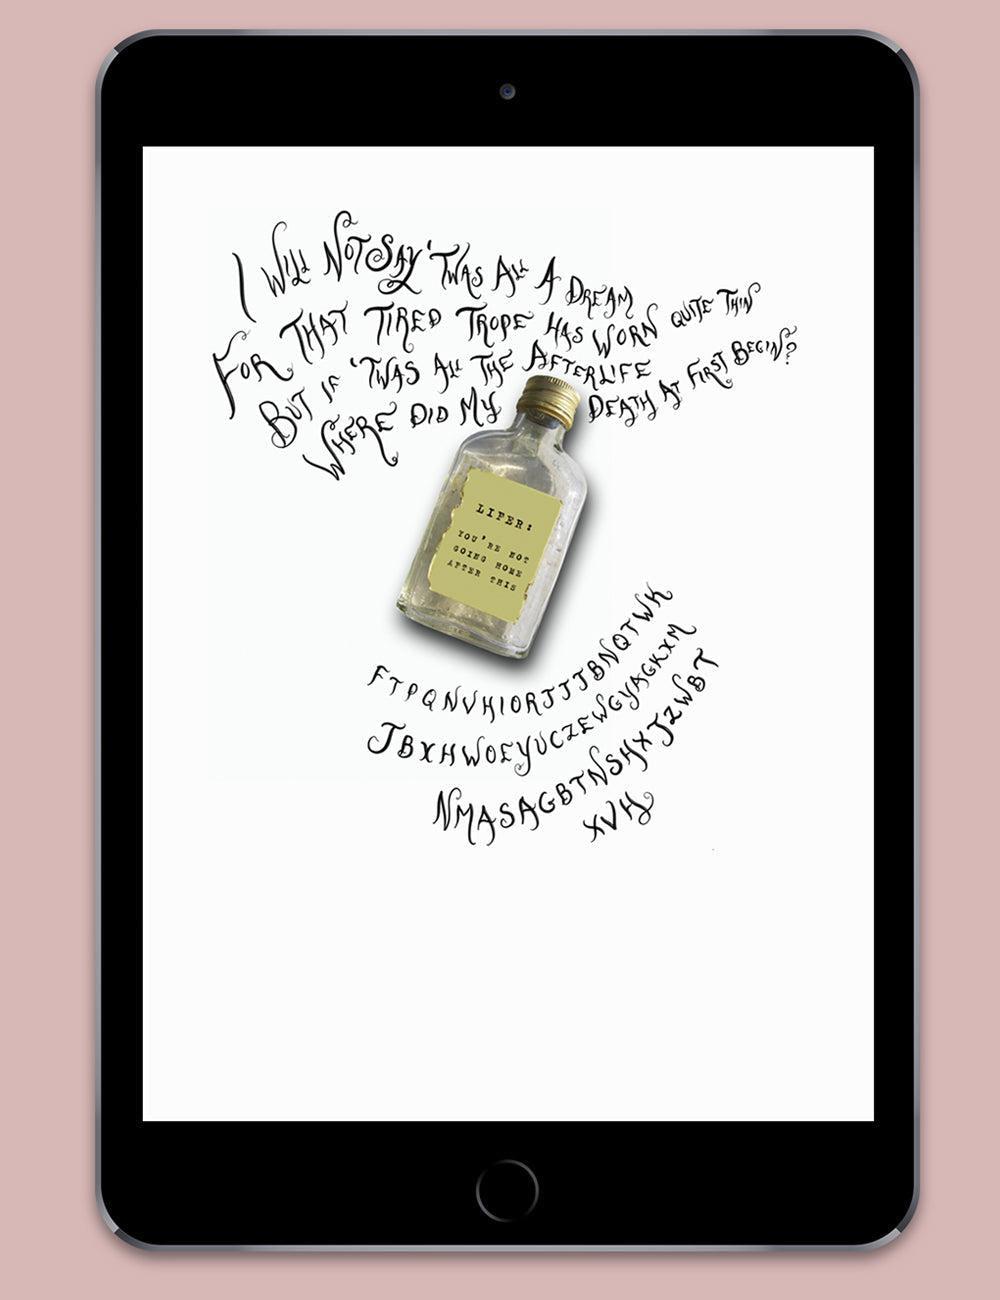 I WILL NOT SAY 'TWAS ALL A DREAM
FOR THAT TIRED TROPE HAS WORN QUITE THIN
BUT IF 'TWAS ALL THE AFTERLIFE
WHERE DID MY DEATH AT FIRST BEGIN?
LIFER:
YOU'RE NOT
GOING HOME
AFTER THIS
FTPQNVHIORJJJJBNQTWK
JBXHWOEYUCZEWGYAGKXM
NMASAGBTNSHXJZWBT
XVH